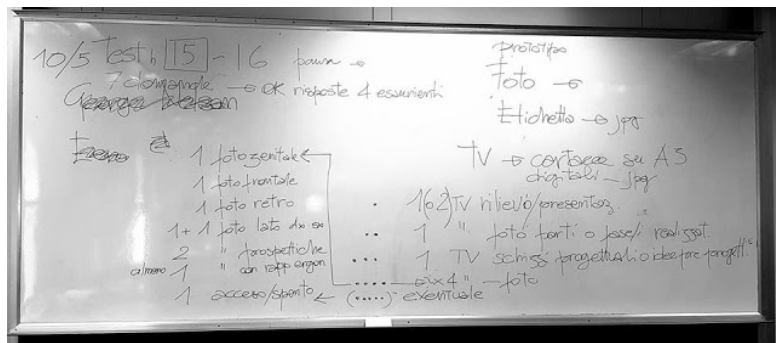 10/5 Test h 15 - 16 pausa →
7 domande → OK risposte 4 esaurienti
1 foto zenitale
1 foto frontale
1 foto retro
1+1 foto lato dx sx
2 " prospettiche
almeno 1 " con rapp ergon
1 acceso/spento
prototipo
Foto →
Etichetta → jpg
TV → cartacea su A3
digitali - jpg
• 1(o2) TV rilievo/presentaz.
•• 1 " foto parti o fasi realizzat.
••• 1 TV schizzi progettuali o idee pre progett.
•••• " — foto
(•••••) eventuale